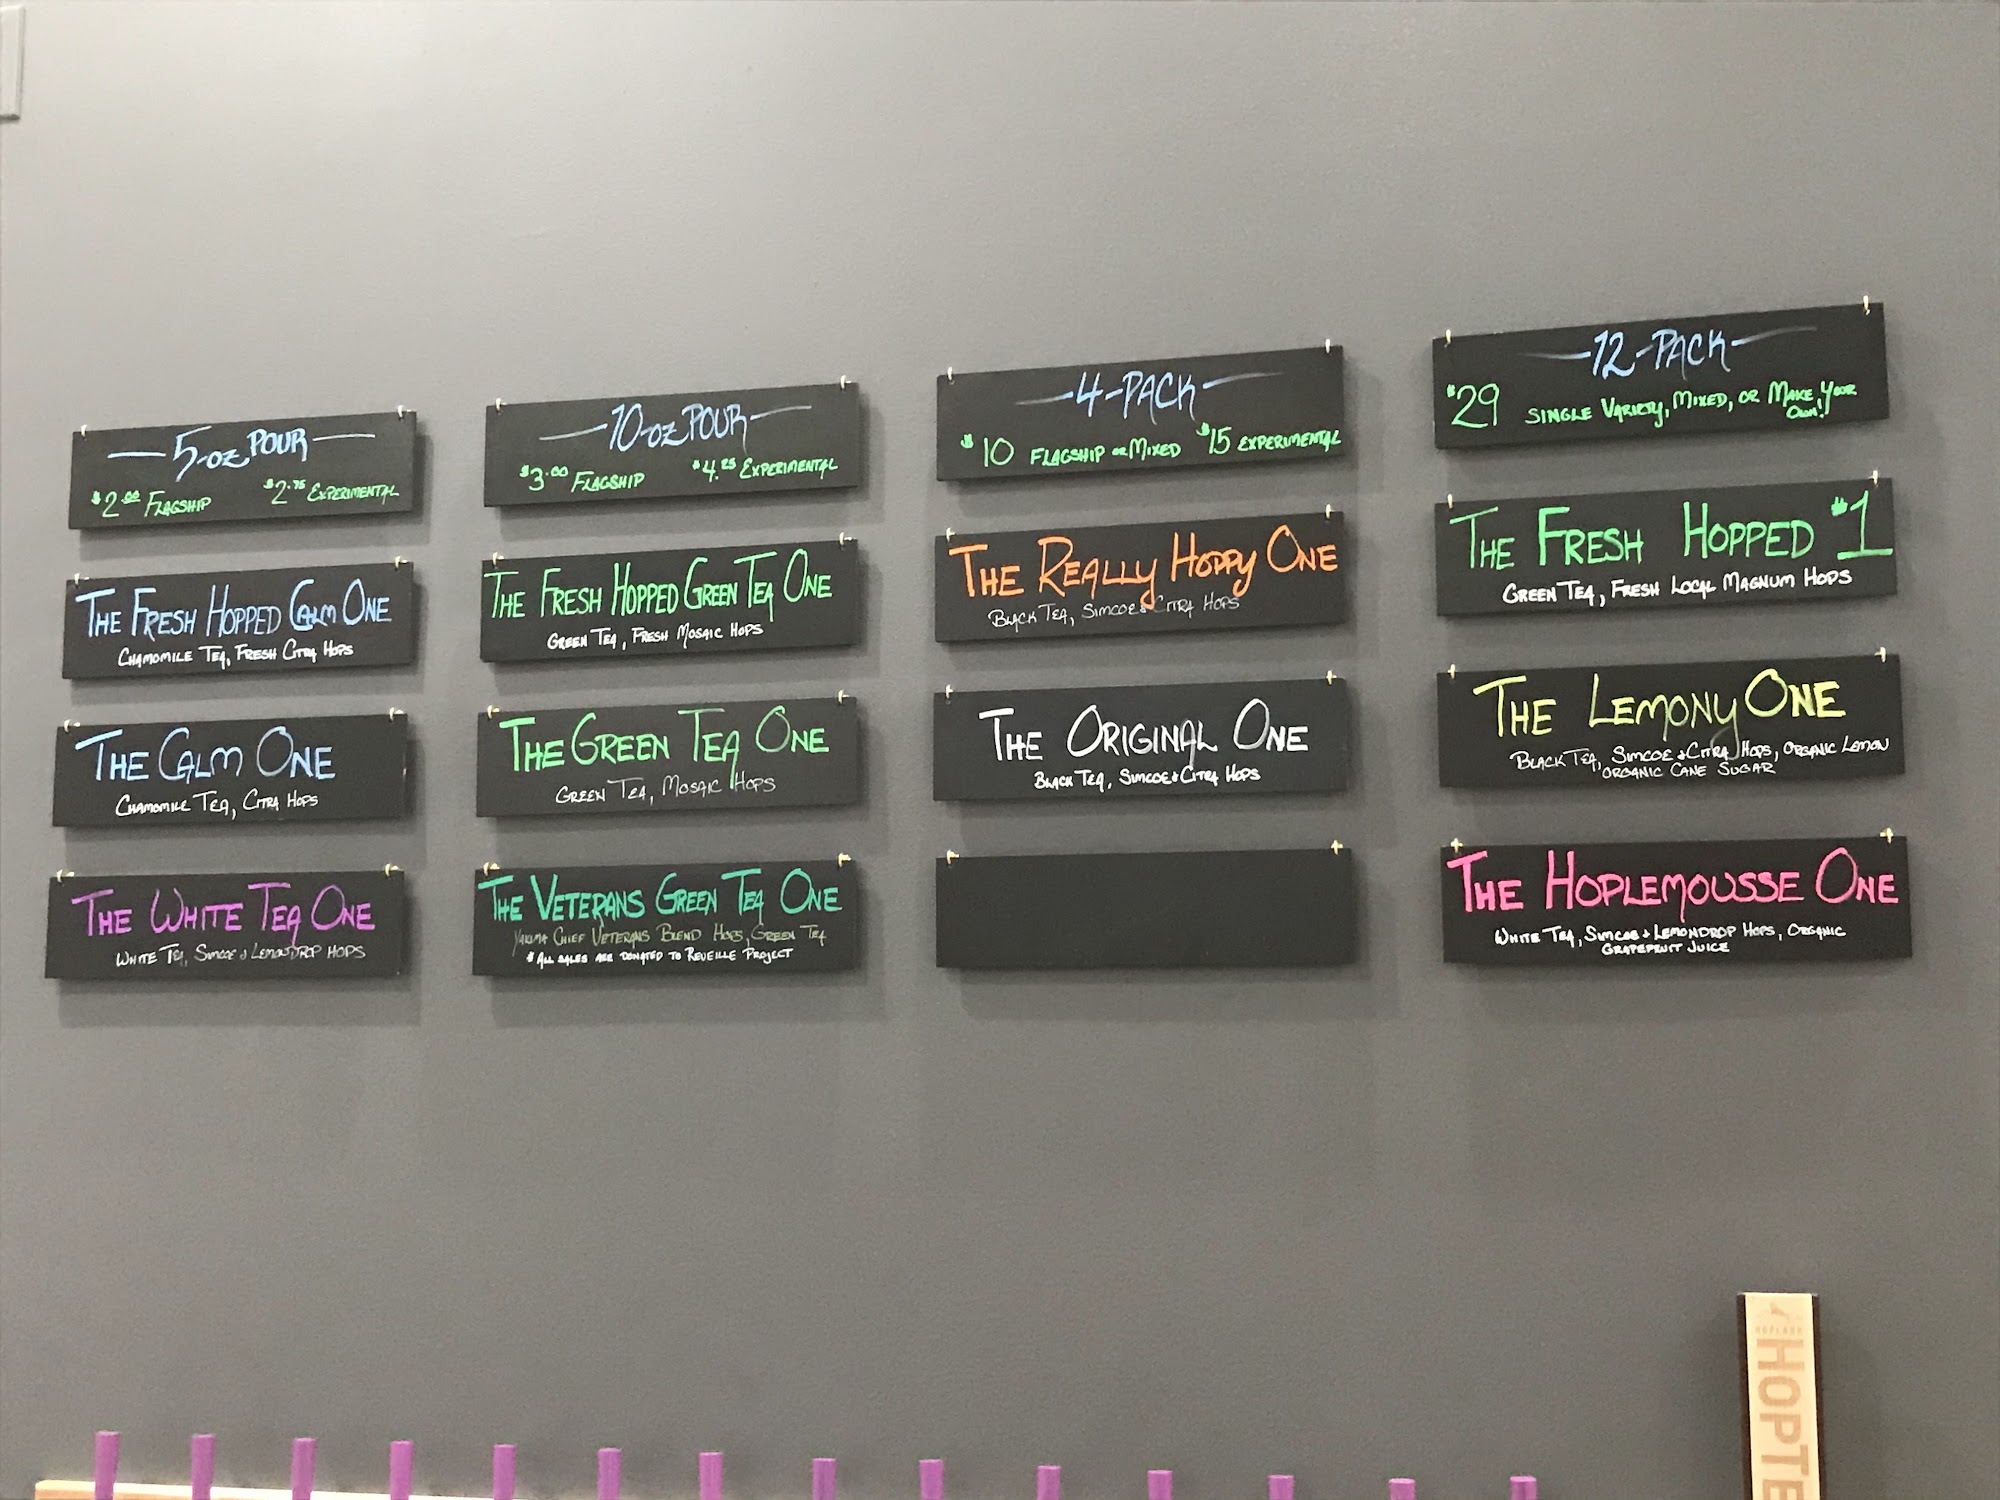 5-oz POUR
$2.00 FLAGSHIP $2.75 EXPERIMENTAL
THE FRESH HOPPED CALM ONE
CHAMOMILE TEA, FRESH CITRA HOPS
THE CALM ONE
CHAMOMILE TEA, CITRA HOPS
THE WHITE TEA ONE
WHITE TEA, SIMCOE & LEMONDROP HOPS
10-oz POUR
$3.00 FLAGSHIP $4.25 EXPERIMENTAL
THE FRESH HOPPED GREEN TEA ONE
GREEN TEA, FRESH MOSAIC HOPS
THE GREEN TEA ONE
GREEN TEA, MOSAIC HOPS
THE VETERANS GREEN TEA ONE
YAKIMA CHIEF VETERANS BLEND HOPS, GREEN TEA
* ALL SALES ARE DONATED TO REVEILLE PROJECT
4-PACK
$10 FLAGSHIP OR MIXED $15 EXPERIMENTAL
THE REALLY HOPPY ONE
BLACK TEA, SIMCOE & CITRA HOPS
THE ORIGINAL ONE
BLACK TEA, SIMCOE & CITRA HOPS
12-PACK
$29 SINGLE VARIETY, MIXED, OR MAKE YOUR
OWN!!
THE FRESH HOPPED #1
GREEN TEA, FRESH LOCAL MAGNUM HOPS
THE LEMONY ONE
BLACK TEA, SIMCOE & CITRA HOPS, ORGANIC LEMON
ORGANIC CANE SUGAR
THE HOPLEMOUSSE ONE
WHITE TEA, SIMCOE & LEMONDROP HOPS, ORGANIC
GRAPEFRUIT JUICE
HOPTE